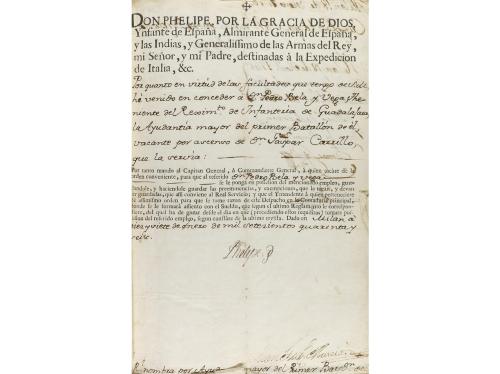 DON PHELIPE, POR LA GRACIA DE DIOS,
Ynfante de España, Almirante General de España,
y las Indias, y Generalissimo de las Armas del Rey,
mi Señor, y mi Padre, destinadas à la Expedicion
de Italia, &c.
Por quanto en virtud de las facultades que tengo de
hè venido en conceder à Dn Pedro Bela y Vega The-
niente del Regimto de Infanteria de Guadalaxara
la Ayudantia mayor del primer Batallon de èl
vacante por ascenso de Dn Gaspar Carrillo,
que la servia:
Por tanto mando al Capitan General, ò Commandante General, à quien tocare dè la
orden conveniente, para que al referido Dn Pedro Bela y Vega
se le ponga en possession del mencionado empleo, guar-
dandole, y haciendole guardar las preeminencias, y exempciones, que le tocan, y deven
ser guardadas, que assi conviene al Real Servicio; y que el Yntendente à quien perteneciere
dè assimismo orden para que se tome razon de este Despacho en la Contaduria principal,
donde se le formarà assiento con el Sueldo, que segun el ultimo Reglamento le correspon-
diere, del qual ha de gozar desde el dia en que (precediendo estos requisitos) tomare posses-
sion del referido empleo, segun constare de la ultima revista. Dado en Milan à
diez y siete de Enero de mil setecientos quarenta y
seis.
Phelipe
mayor del Primer